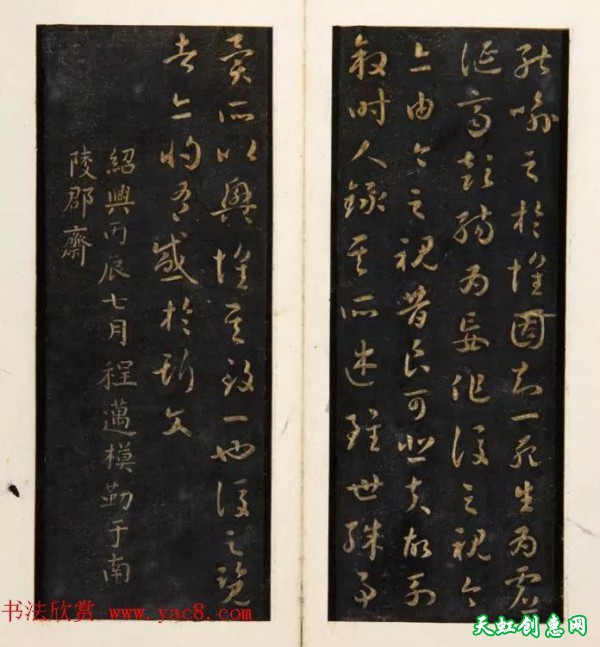 能喻之於懷固知一死生為虛
誕齊彭殤為妄作後之視今
亦由今之視昔良可悲夫故列
叙时人錄其所述雖世殊事
異所以興懷其致一也後之覽
者亦將有感於斯文
紹興丙辰七月程邁模勒于南
陵郡齋
书法欣赏 www.yac8.com
天虹创惠网